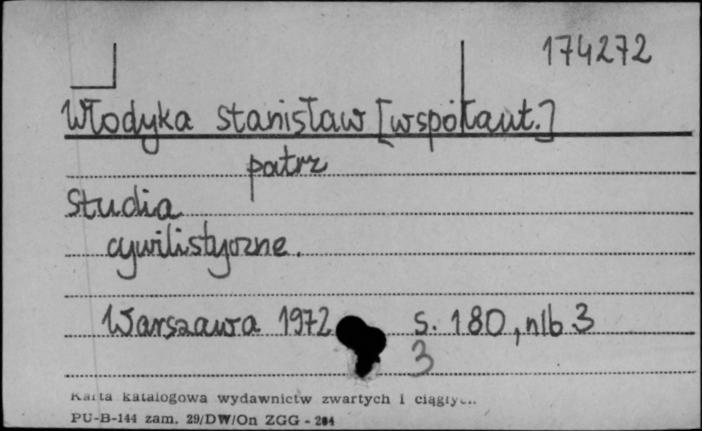 174272
Włodyka Stanisław [współaut.]
patrz
Studia
cywilistyczne.
Warszawa 1972 s. 180, nlb 3
3
Karta katalogowa wydawnictw zwartych i ciągłych
PU-B-144 zam. 29/DW/On ZGG - 284